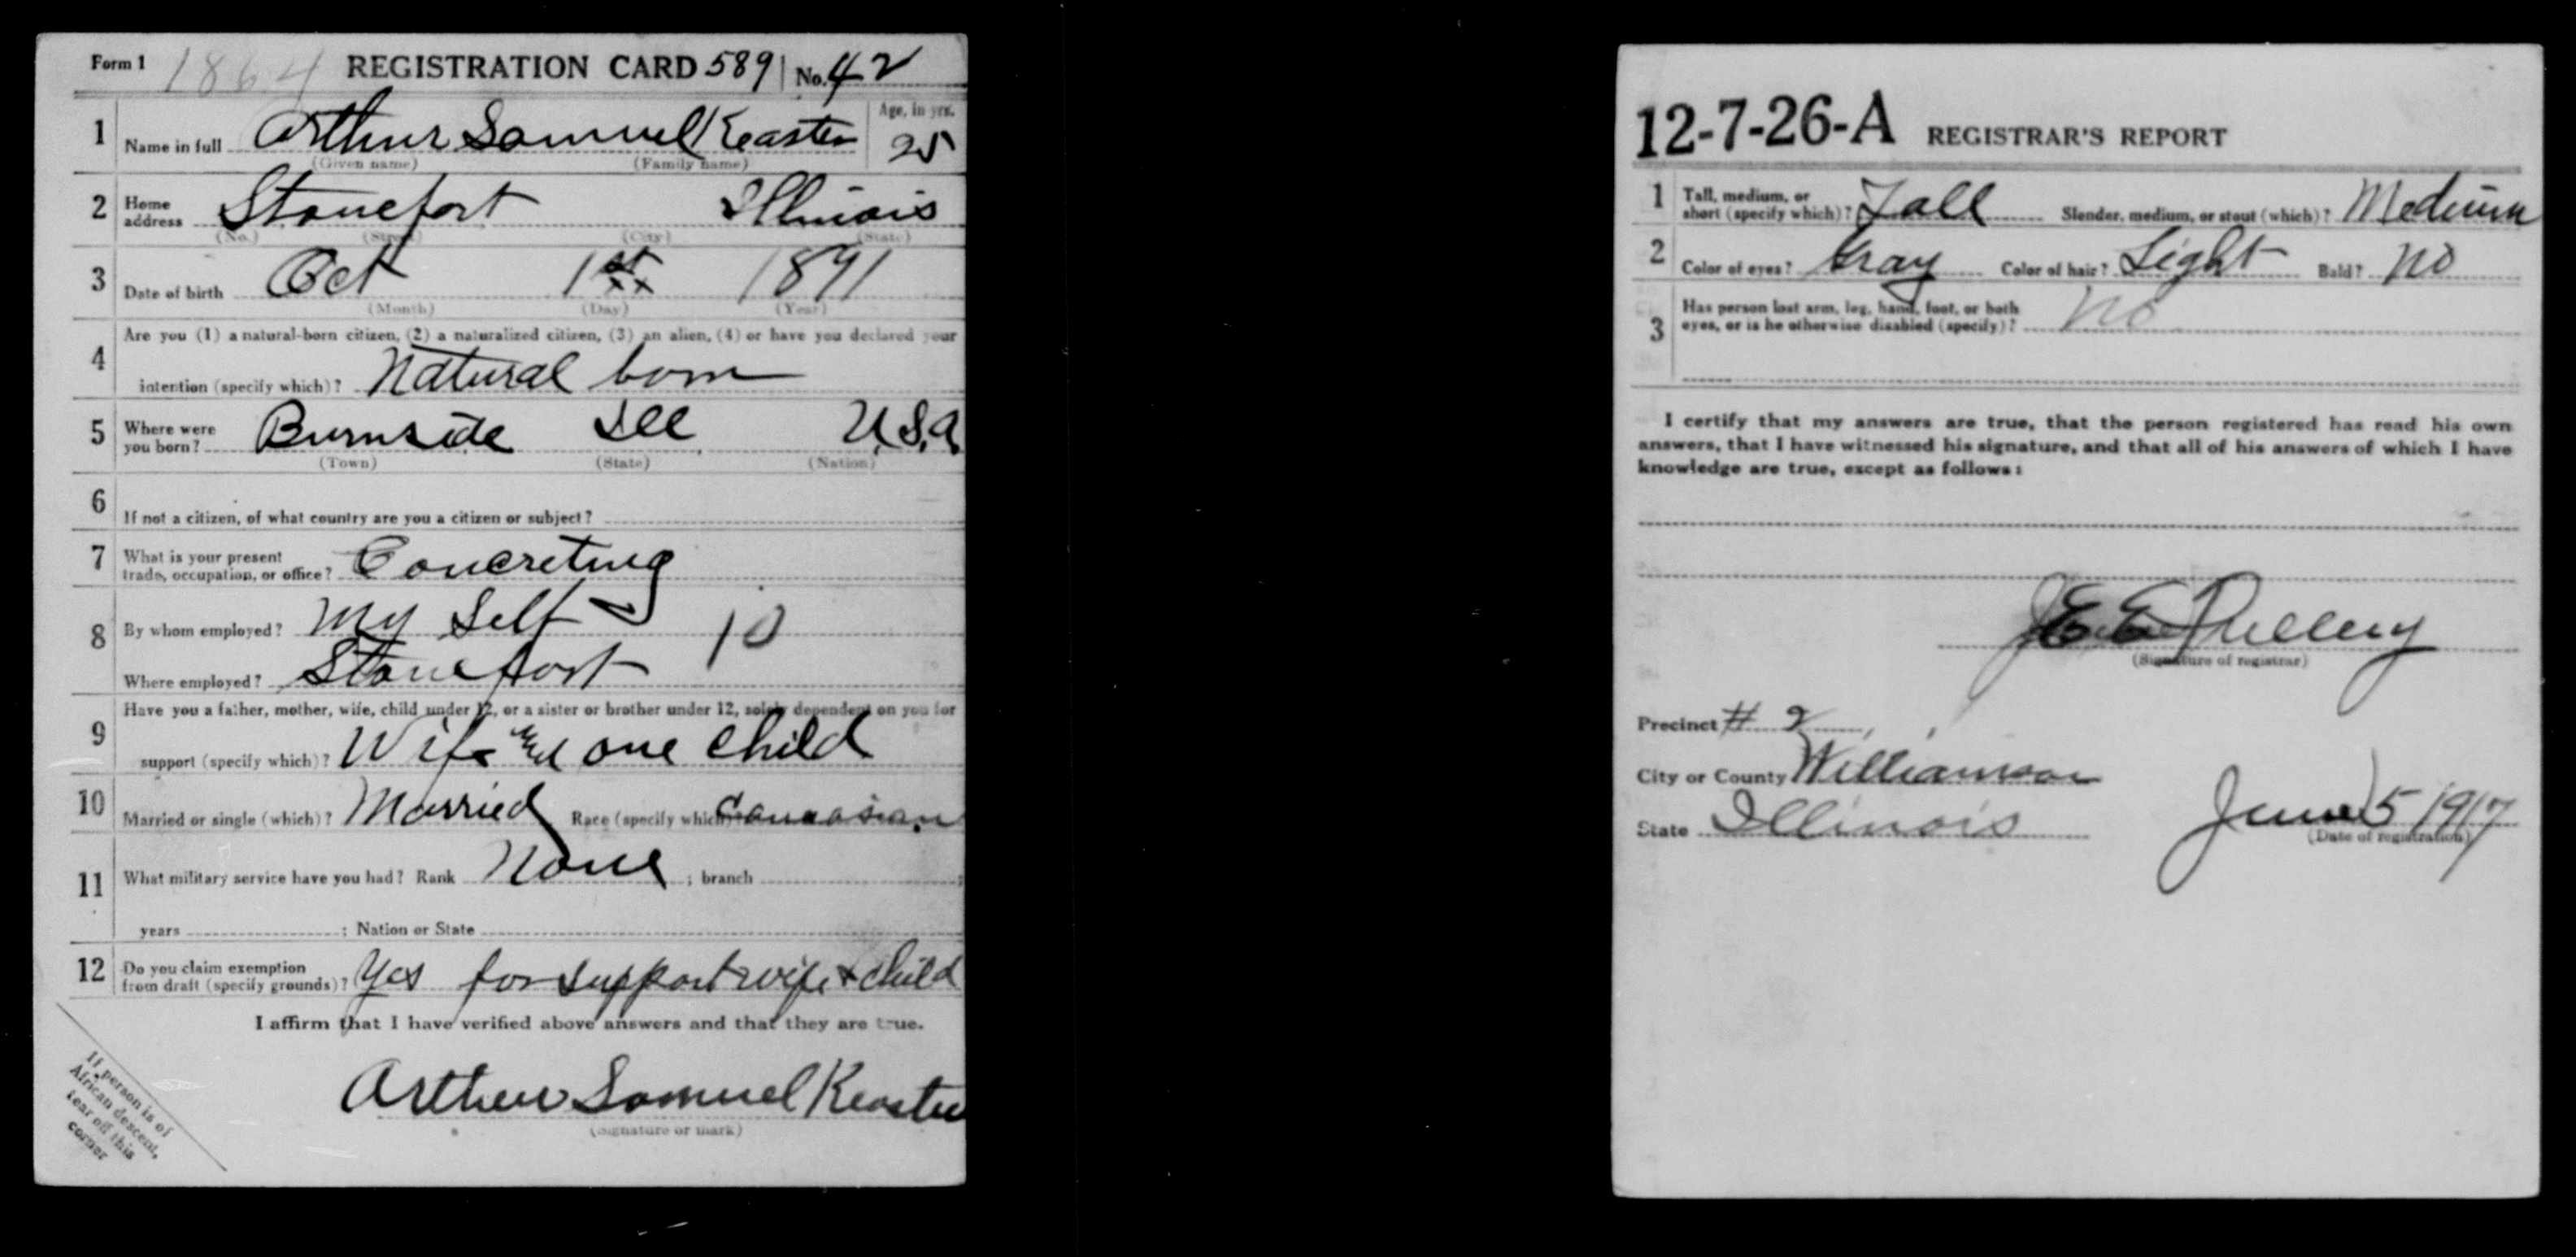 Form 1 1864 REGISTRATION CARD 589 No. 42
1 Name in full Arthur Samuel Keaster Age, in yrs. 25
(Given name) (Family name)
2 Home address Stonefort Illinois
(No.) (Street) (City) (State)
3 Date of birth Oct 1st 1891
(Month) (Day) (Year)
4 Are you (1) a natural-born citizen, (2) a naturalized citizen, (3) an alien, (4) or have you declared your
intention (specify which)? Natural born
5 Where were you born? Burnside Ill U.S.A
(Town) (State) (Nation)
6 If not a citizen, of what country are you a citizen or subject?
7 What is your present trade, occupation, or office? Concreting
8 By whom employed? My Self 10
Where employed? Stonefort
9 Have you a father, mother, wife, child under 12, or a sister or brother under 12, solely dependent on you for
support (specify which)? Wife and one child
10 Married or single (which)? Married Race (specify which)? Caucasian
11 What military service have you had? Rank None ; branch ;
years ; Nation or State
12 Do you claim exemption from draft (specify grounds)? Yes for support wife + child
I affirm that I have verified above answers and that they are true.
Arthur Samuel Keaster
(Signature or mark)
If person is of
African descent,
tear off this
corner
12-7-26-A REGISTRAR'S REPORT
1 Tall, medium, or short (specify which)? Tall Slender, medium, or stout (which)? Medium
2 Color of eyes? Gray Color of hair? Light Bald? No
3 Has person lost arm, leg, hand, foot, or both
eyes, or is he otherwise disabled (specify)? No
I certify that my answers are true, that the person registered has read his own
answers, that I have witnessed his signature, and that all of his answers of which I have
knowledge are true, except as follows:
(Signature of registrar)
Precinct # 2
City or County Williamson
State Illinois June 5 1917
(Date of registration)